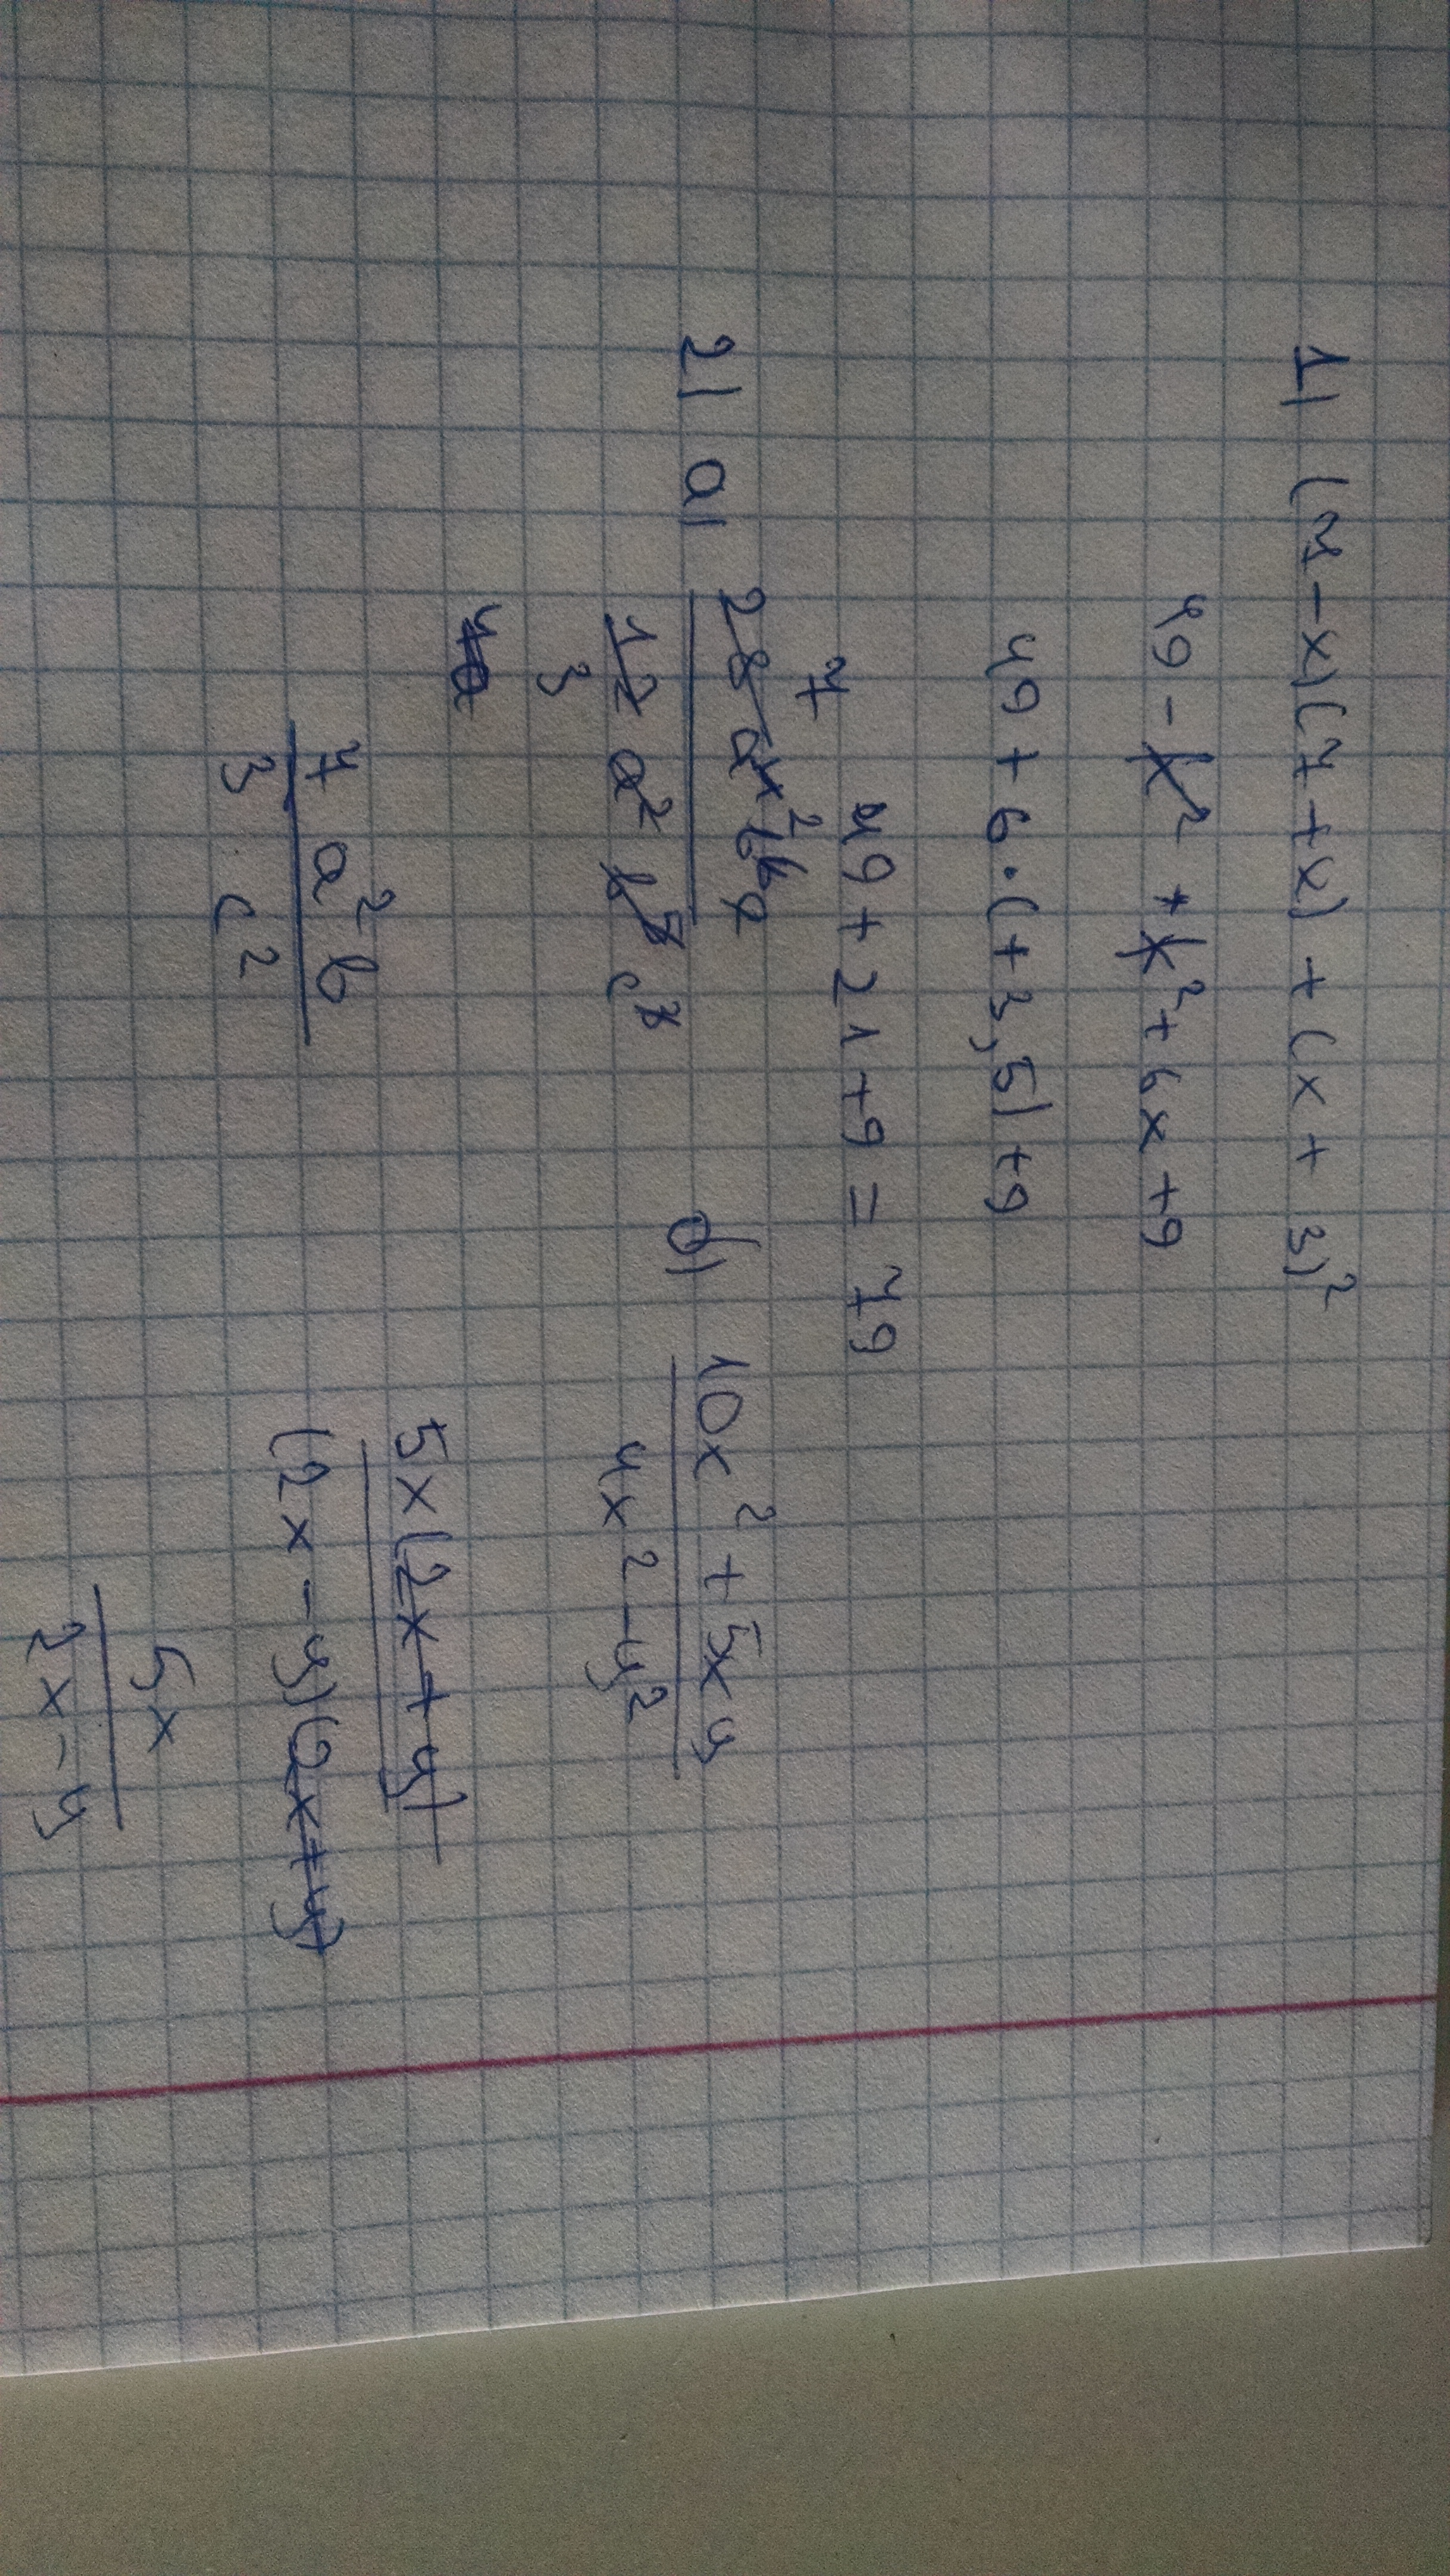 1) (7 - x)(7 + x) + (x + 3)²
49 - x² + x² + 6x + 9
49 + 6 · (+3,5) + 9
49 + 21 + 9 = 79
2) a)
7
28 a⁴ b⁶ c
12 a² b⁵ c³
3
7 a² b
3 c²
б)
10x² + 5xy
4x² - y²
5x(2x + y)
(2x - y)(2x + y)
5x
2x - y